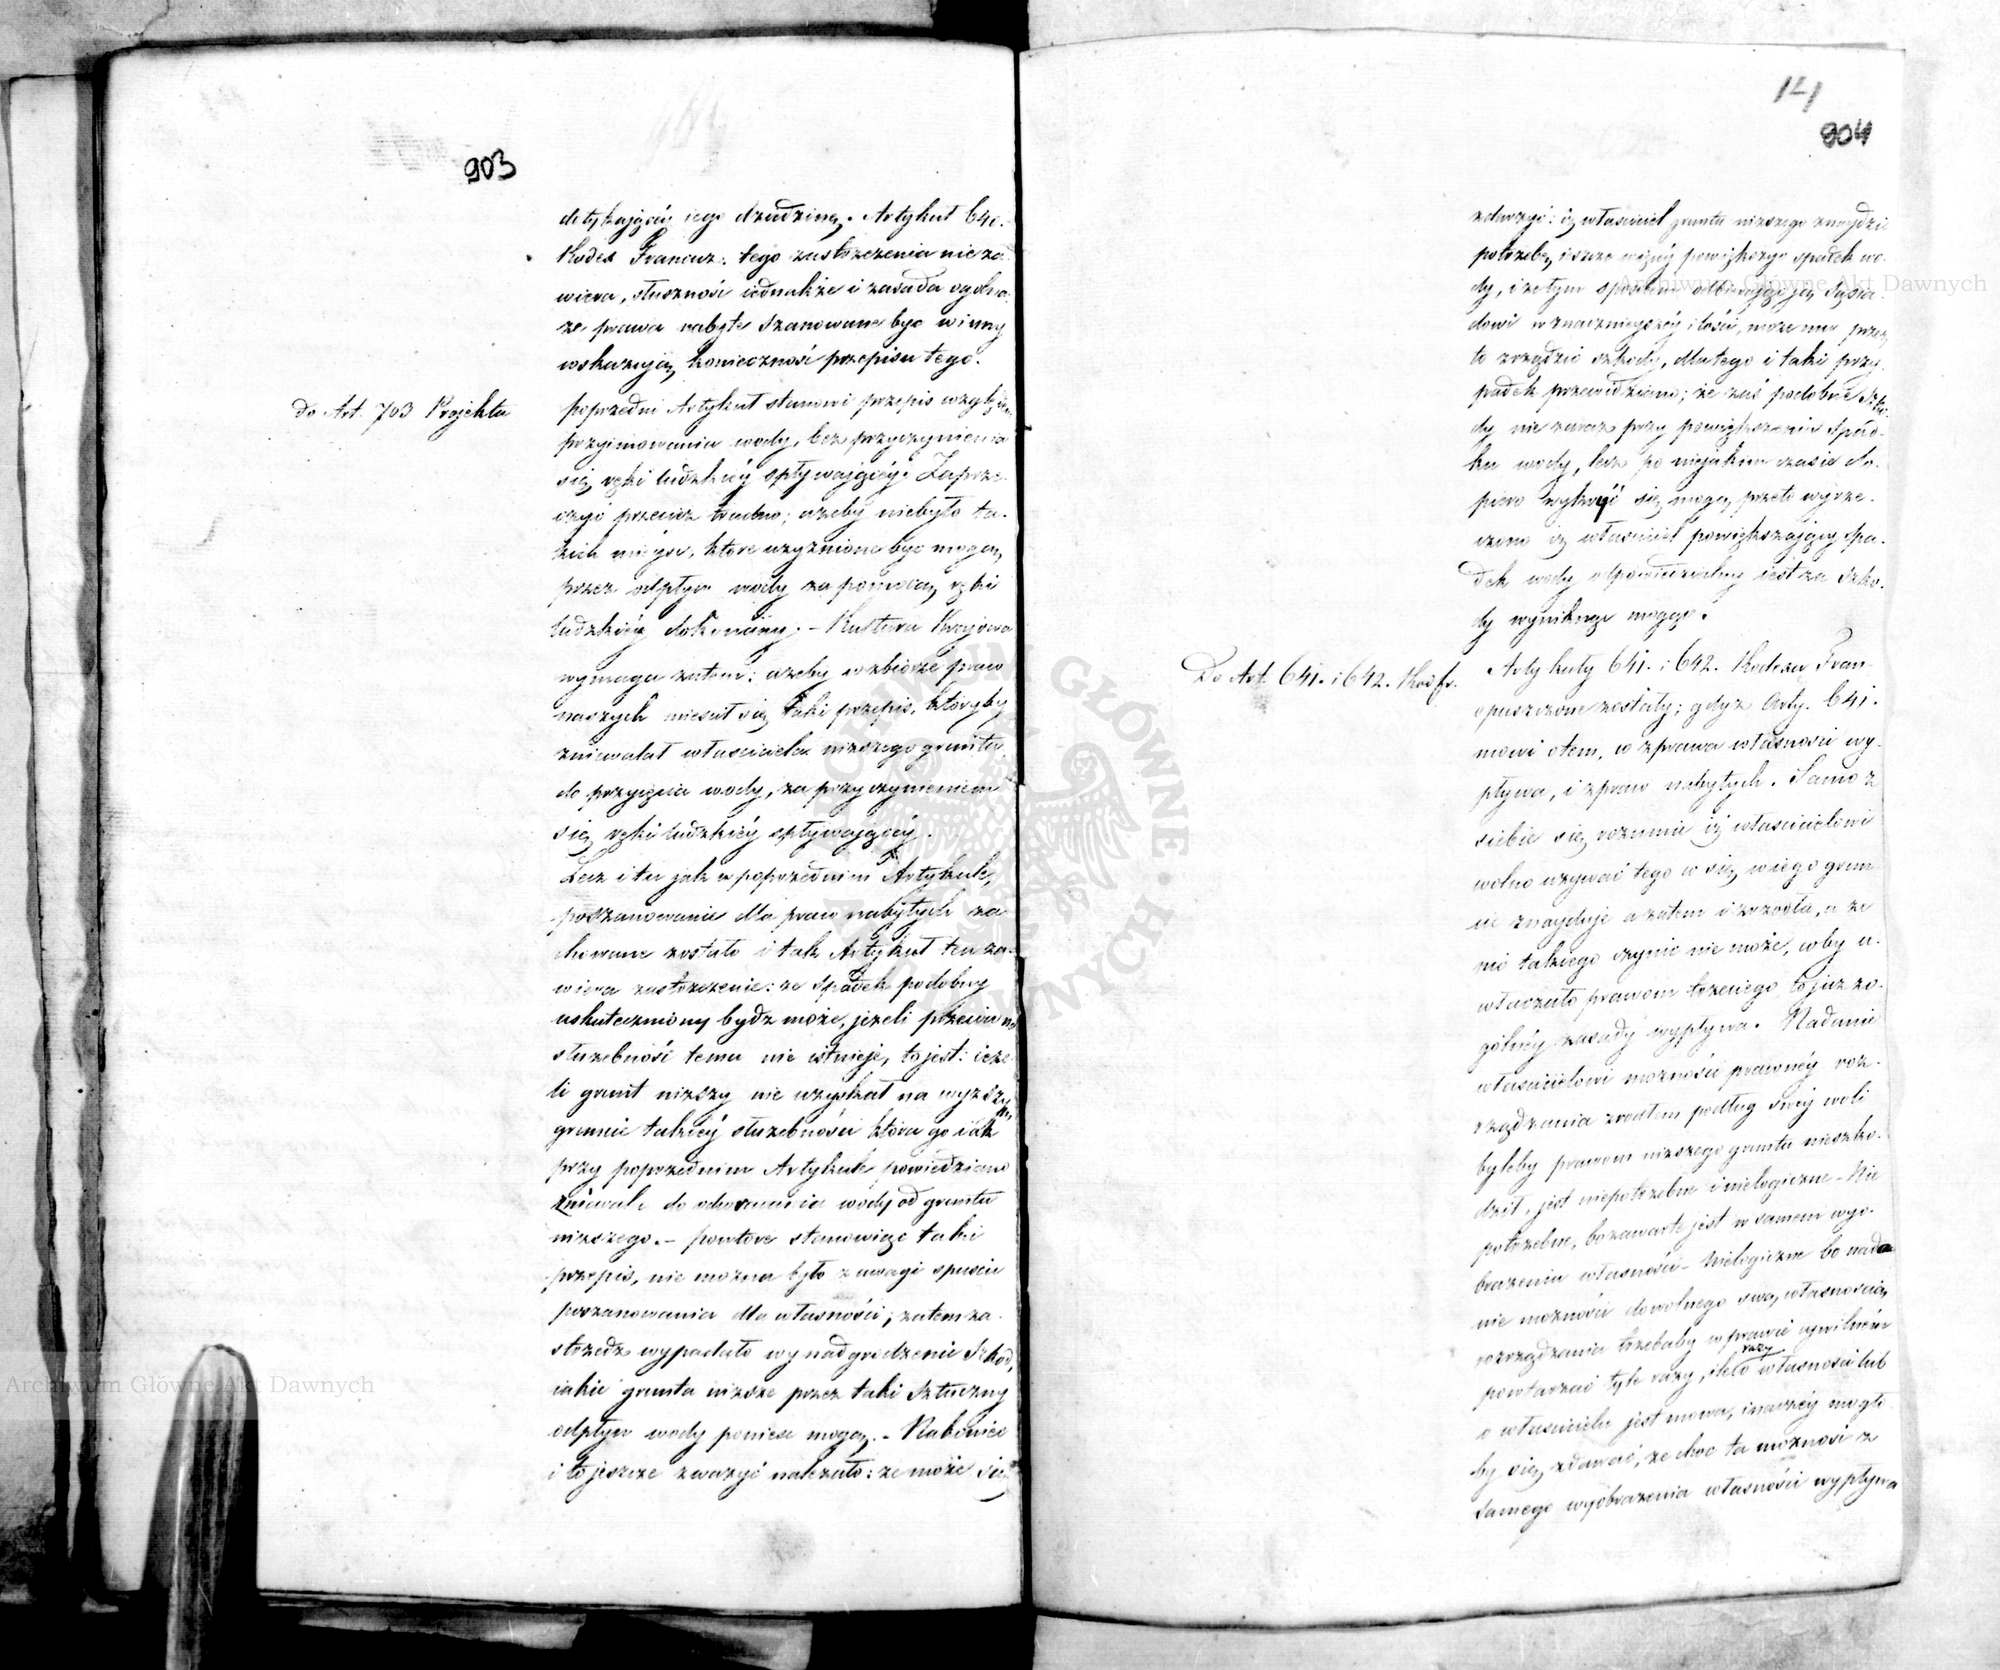 903
dotykającéy iego dziedziną. Artykuł 640.
Kodex Francuz: tego zastrzeżenia nieza-
wiera, słuszność iednakże i zasada ogólna
że prawa nabyte szanowane być winny
wskazują konieczność przepisu tego.
do Art. 703 Projektu
poprzedni Artykuł stanowi przepis względem
przyimowania wody, bez przyczynienia
się ręki ludzkiéy spływaiącéy. Zaprze-
czyć przecież trudno; ażeby niebyło ta-
kich mieysc, które użyźnione być mogą,
przez odpływ wody za pomocą ręki
ludzkiéy dokonany. – Kultura Krajowa
wymaga zatem: ażeby w zbiorze praw
naszych mieścił się taki przepis, któryby
zniewalał właściciela niższego gruntu
do przyjęcia wody, za przyczynieniem
się ręki ludzkiéy spływającéy.
Lecz i tu jak w poprzednim Artykule,
poszanowanie dla praw nabytych za-
chowane zostało i tak Artykuł ten za-
wiera zastrzeżenie: że spadek podobny
uskuteczniony bydź może, jeżeli przeciwna
służebność temu nie istnieje, to jest: ieże-
li grunt niższy nie uzyskał na wyższym
gruncie takiéy służebności która go iak
przy poprzednim Artykule powiedziano
zniewala do odwracania wody od gruntu
niższego. – powtóre stanowiąc taki
przepis, nie można było z uwagi spuścić
poszanowania dla własności; zatem za-
strzedz wypadało wynadgrodzenie szkod,
iakie grunta niższe przez taki sztuczny
odpływ wody ponieść mogą. – Nakoniec
i to jeszcze zważyć należało: że może się
141
904
zdarzyć: iż właściciel gruntu niższego znaydzie
potrzebę ieszcze więcéy powiększyć spadek wo-
dy, i ze tym sposobem odbierający ją sąsia-
dowi w znacznieyszéy ilości, może mu przez
to zrządzić szkodę, dlatego i taki przy-
padek przewidziano; że zaś podobne szko-
dy nie zaraz przy powiększeniu spad-
ku wody, lecz po niejakim czasie do-
piero wykryć się mogą, przeto wyrze-
czono iż właściciel powiększający spa-
dek wody odpowiedzialny iest za szko-
dy wyniknąć mogące.
Do Art. 641. i 642. Kod fr.
Artykuły 641. i 642. Kodexu Fran-
opuszczone zostały; gdyż Arty. 641.
mówi otem, co z prawa własności wy-
pływa, i z praw nabytych. Samo z
siebie się rozumie iż właścicielowi
wolno używać tego co się w iego grun-
cie znayduje a zatem i zrzodła, a że
nic takiego czynić nie może, coby u-
właczało prawom trzeciego, to już z o-
gólnéy zasady wypływa. Nadanie
właścicielowi możności prawnéy roz-
rządzania zrodłem podług swéy woli
byleby prawom niższego gruntu nieszko-
dził, jest niepotrzebne i nielogiczne – Nie
potrzebne, bo zawarte jest w samem wyo-
brażeniu własności – Nielogiczne bo nada-
nie możności dowolnego swą własnością
rozrządzania trzebaby w prawie cywilném
powtarzać tyle razy, ile razy o własności lub
o właścicielu jest mowa, inaczéy mogło-
by się zdawać, że choć ta możność z
samego wyobrażenia własności wypływa
Archiwum Główne Akt Dawnych
Archiwum Główne Akt Dawnych